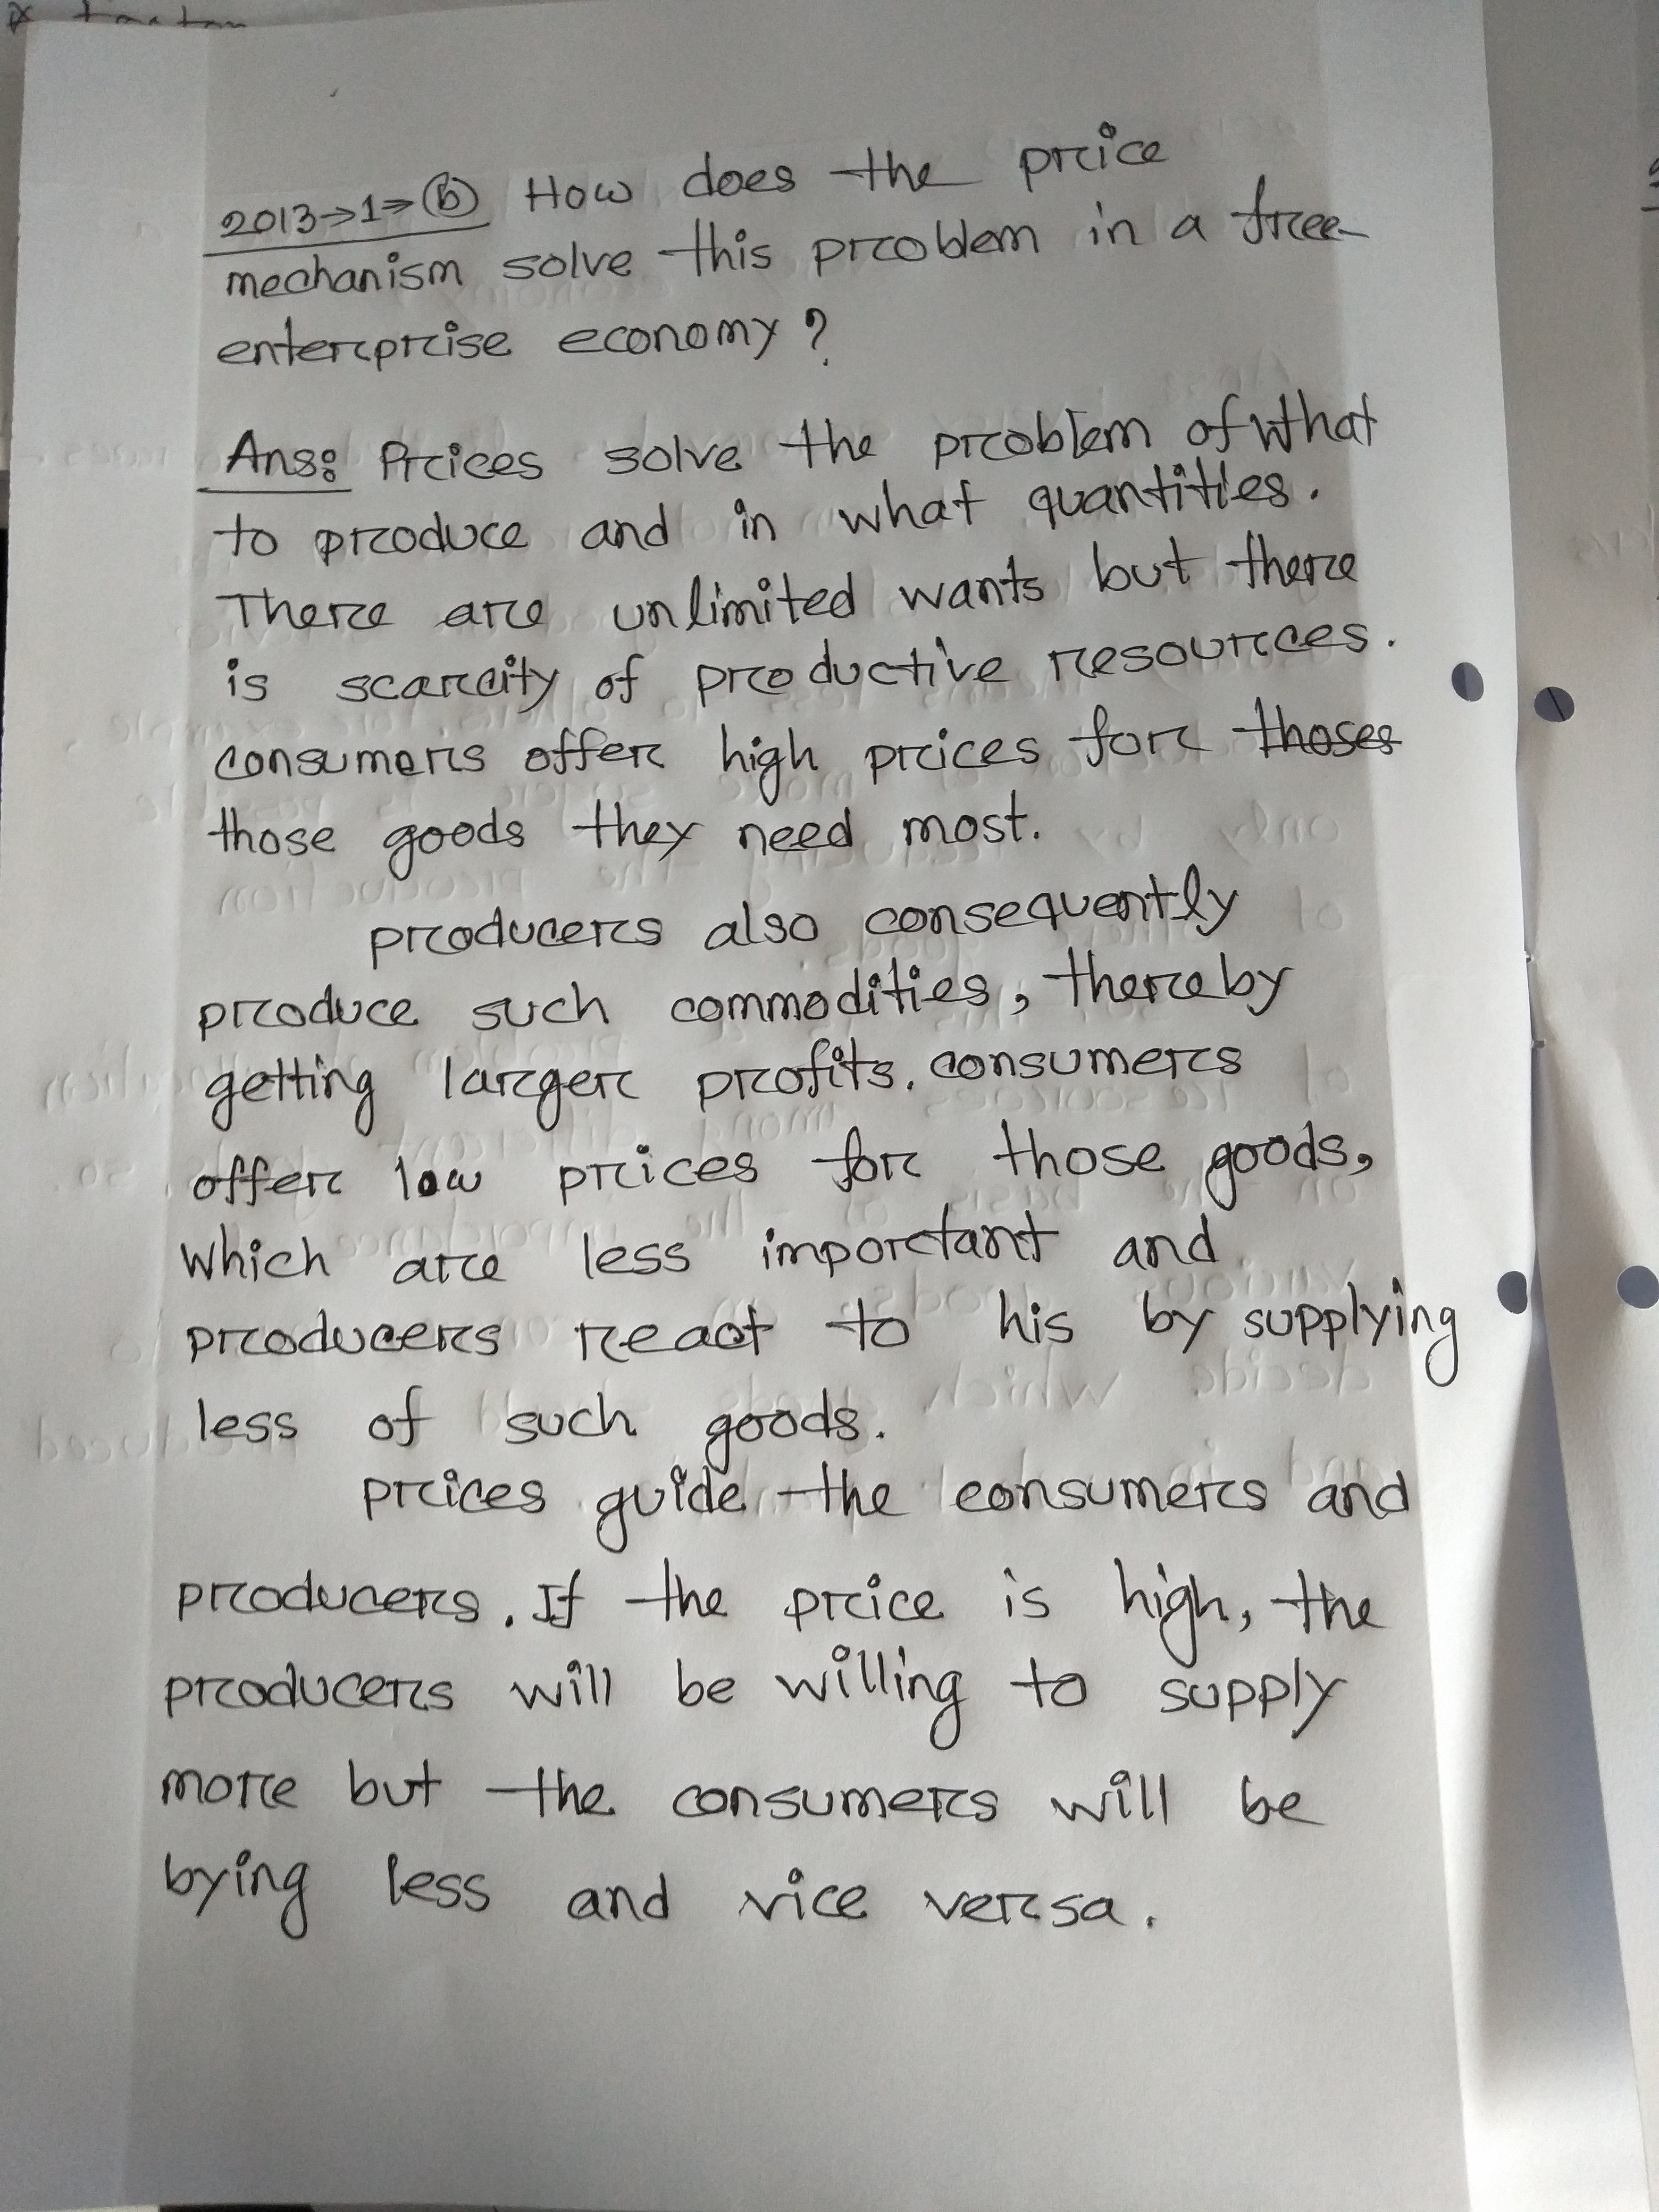 2013→1⇒ⓑ How does the price
mechanism solve this problem in a free-
enterprise economy?
Ans: Prices solve the problem of what
to produce and in what quantities.
There are unlimited wants but there
is scarcity of productive resources.
consumers offer high prices for thoses
those goods they need most.
producers also consequently
produce such commodities, thereby
getting larger profits. consumers
offer low prices for those goods,
which are less important and
producers react to his by supplying
less of such goods.
prices guide the consumers and
producers. If the price is high, the
producers will be willing to supply
more but the consumers will be
bying less and vice versa.